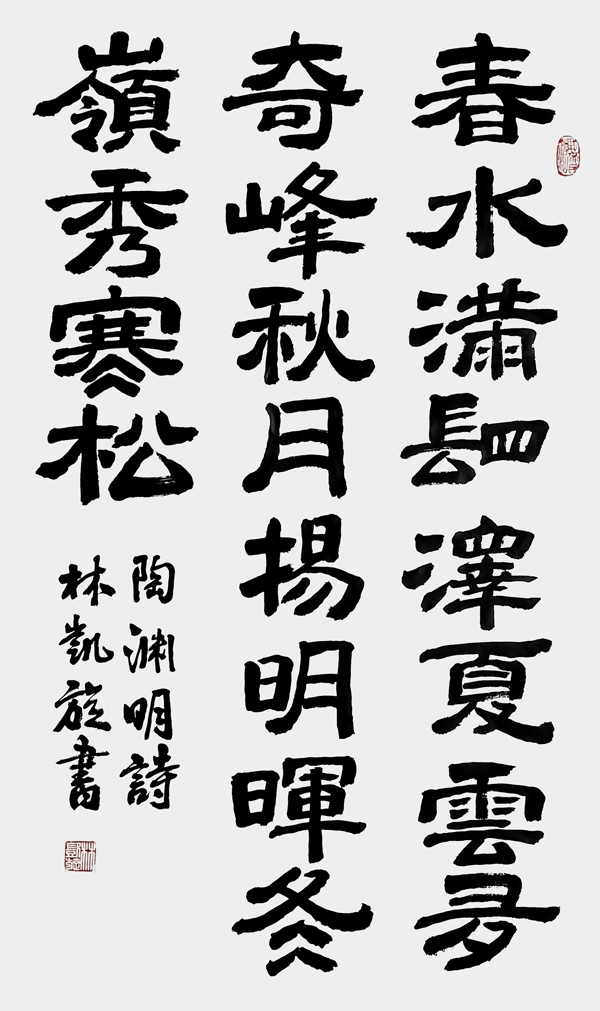 春水滿䦉澤夏雲多
奇峰秋月揚明暉冬
嶺秀寒松
陶渊明詩
林凱旋書